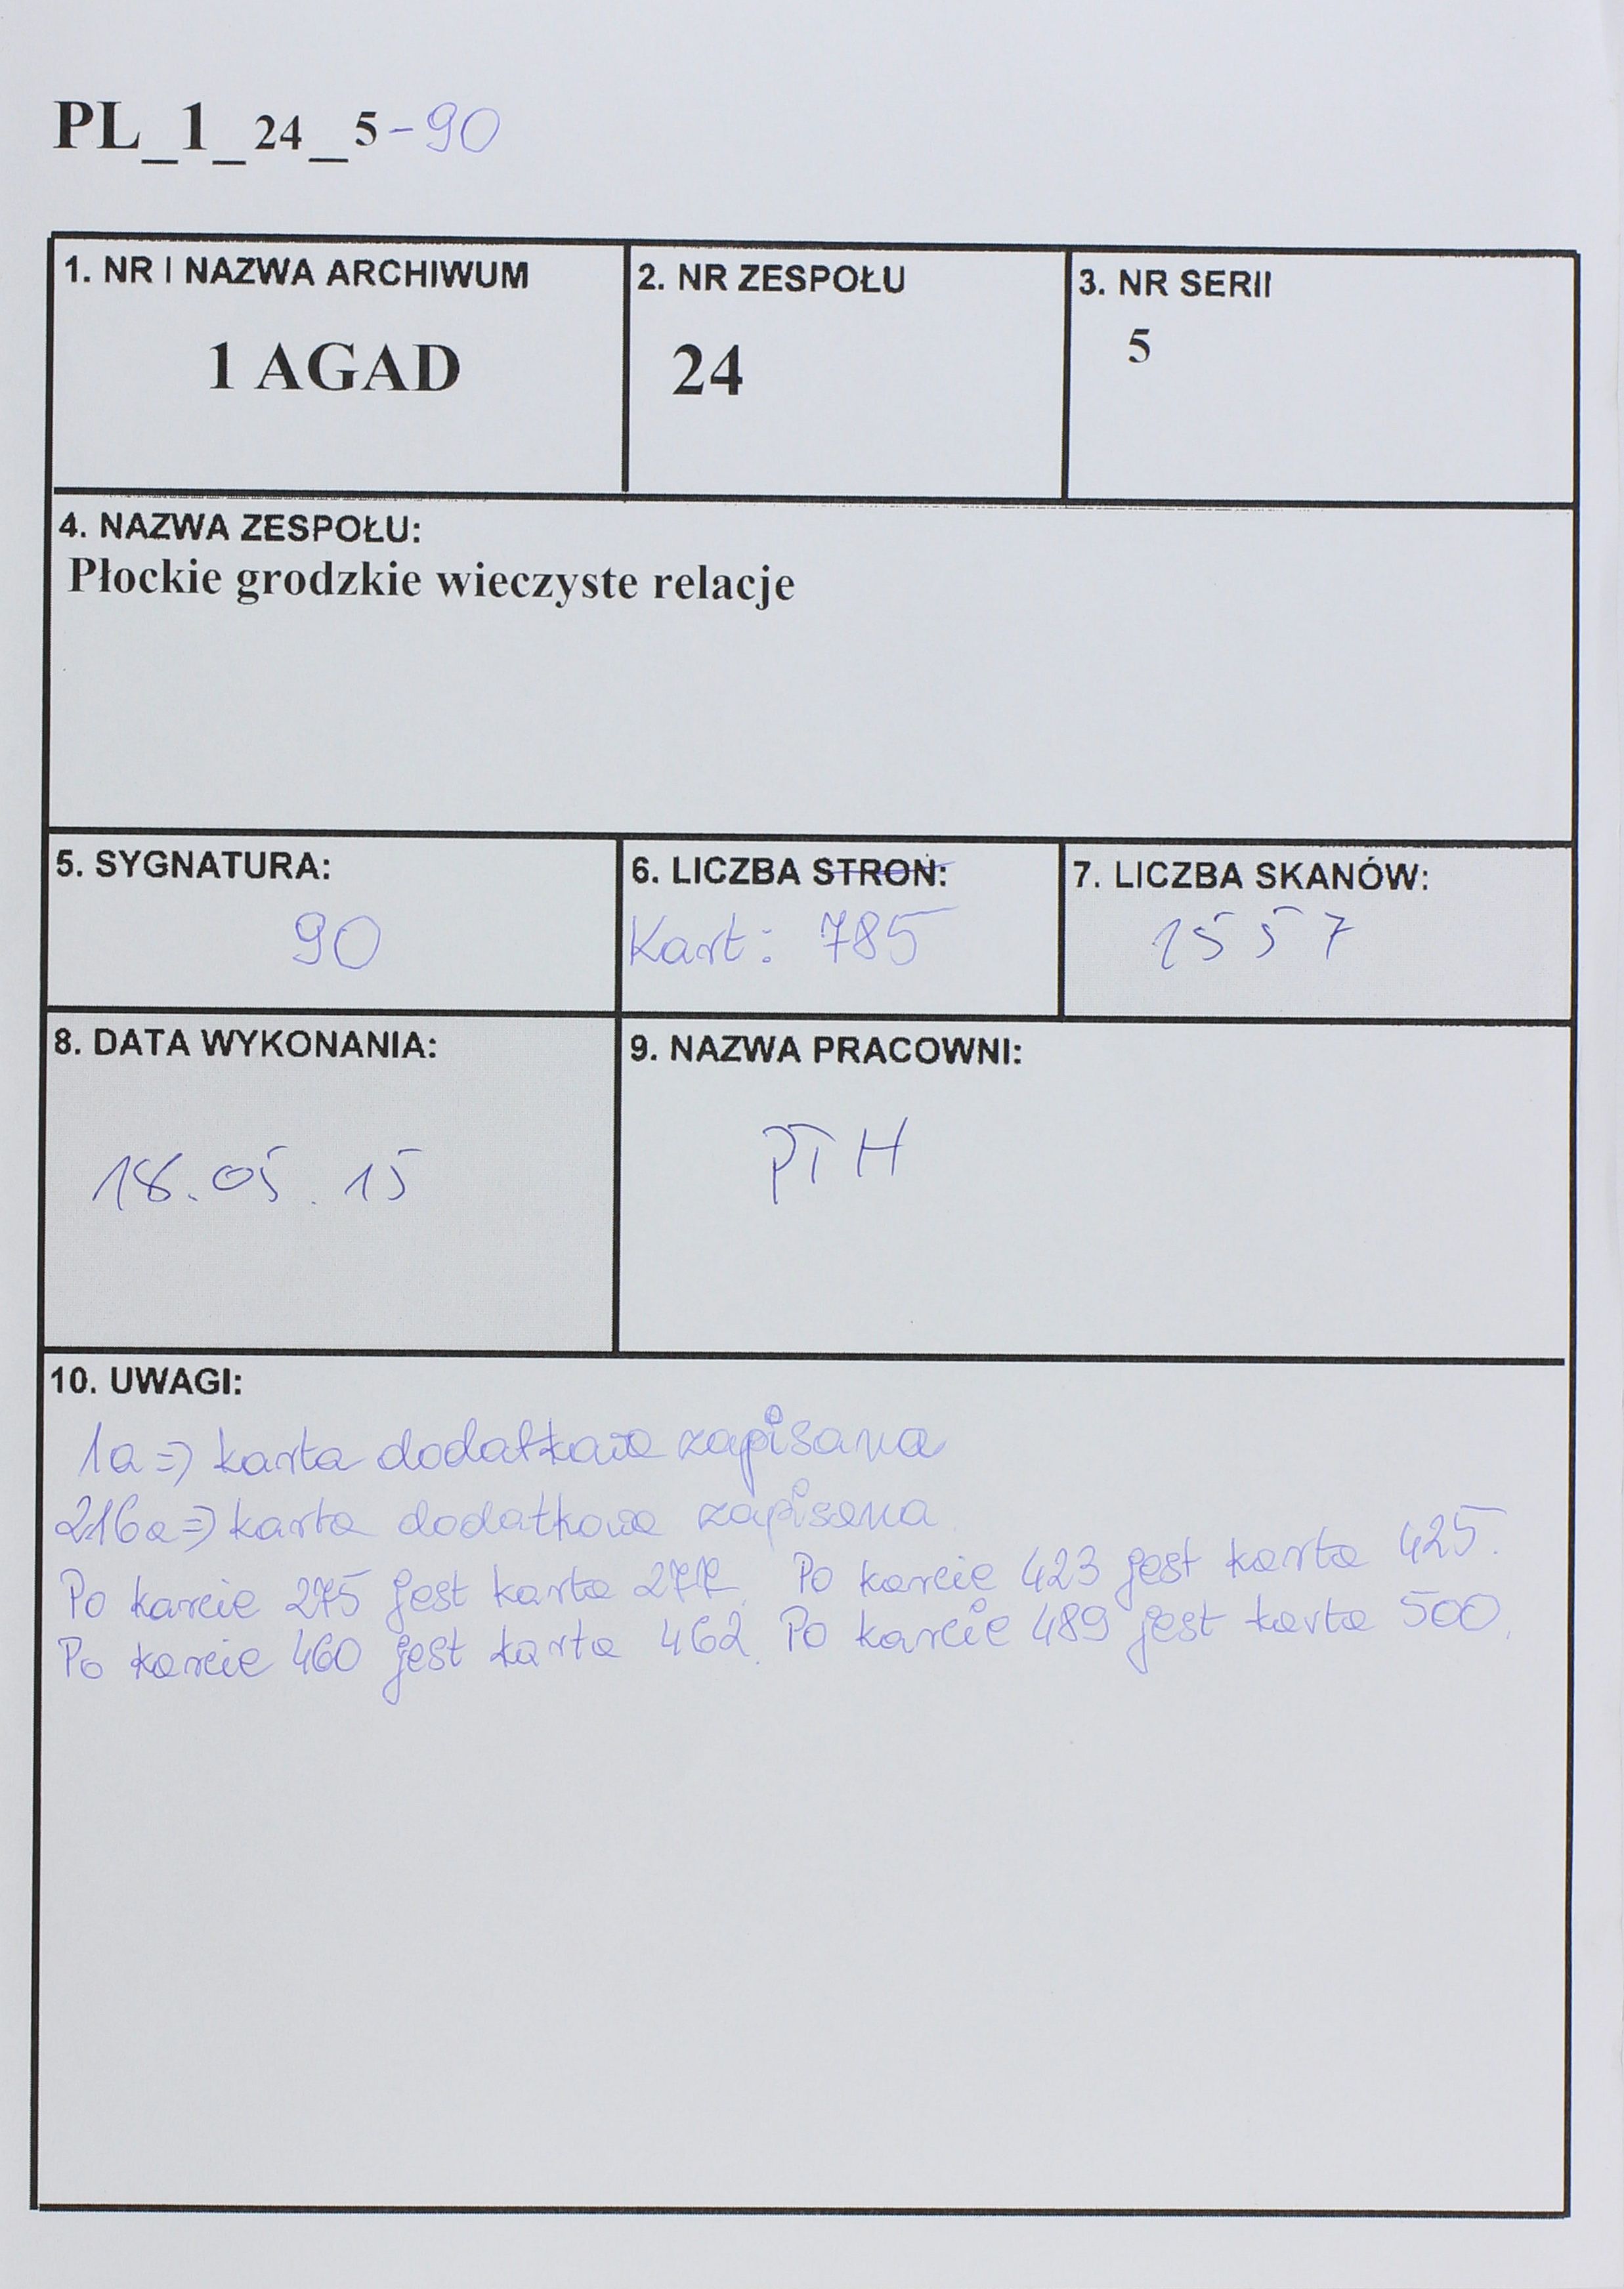 PL_1_24_5-90
1. NR I NAZWA ARCHIWUM
1 AGAD
2. NR ZESPOŁU
24
3. NR SERII
5
4. NAZWA ZESPOŁU:
Płockie grodzkie wieczyste relacje
5. SYGNATURA:
90
6. LICZBA STRON:
Kart: 785
7. LICZBA SKANÓW:
1557
8. DATA WYKONANIA:
18.05.15
9. NAZWA PRACOWNI:
PTH
10. UWAGI:
1a => karta dodatkowa zapisana
216a => karta dodatkowa zapisana
Po karcie 275 jest karta 277. Po karcie 423 jest karta 425.
Po karcie 460 jest karta 462. Po karcie 489 jest karta 500.